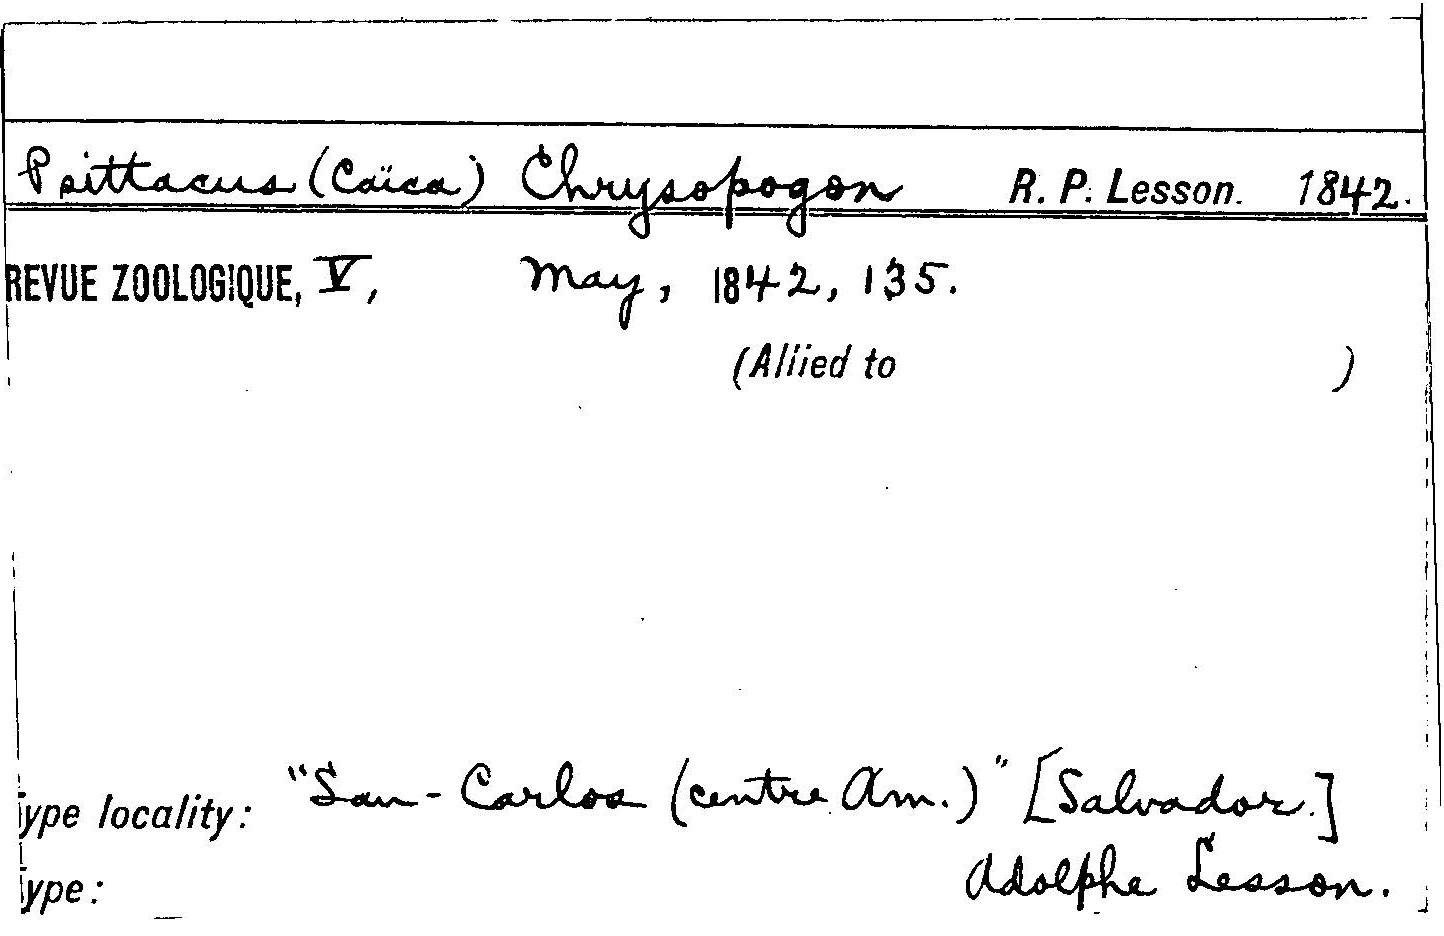 Psittacus (Caïca) Chrysopogon R. P. Lesson. 1842.
REVUE ZOOLOGIQUE, V, May, 1842, 135.
(Allied to )
Type locality: "San-Carlos (centre Am.)" [Salvador.]
Type: Adolphe Lesson.